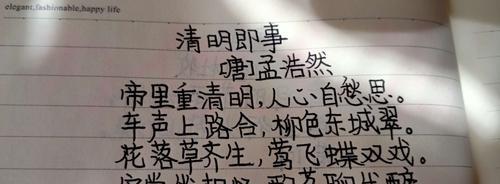 elegant,fashionable,happy life
清明即事
唐孟浩然
帝里重清明，人心自愁思。
车声上路合，柳色东城翠。
花落草齐生，莺飞蝶双戏。